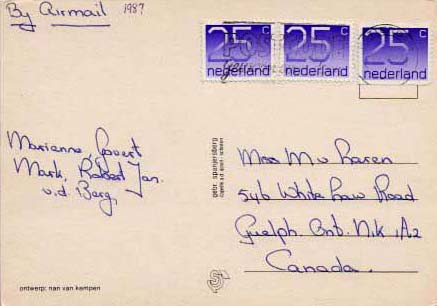 By Airmail
1987
25 c 25 c 25 c
nederland nederland nederland
Marianne, Govert
Mark, Robert Jan.
v.d. Berg,
gebr. spanjersberg
Mu Laren
546 White Law Road
Guelph. Ont. N1K 1A2
Canada.
ontwerp: nan van kampen